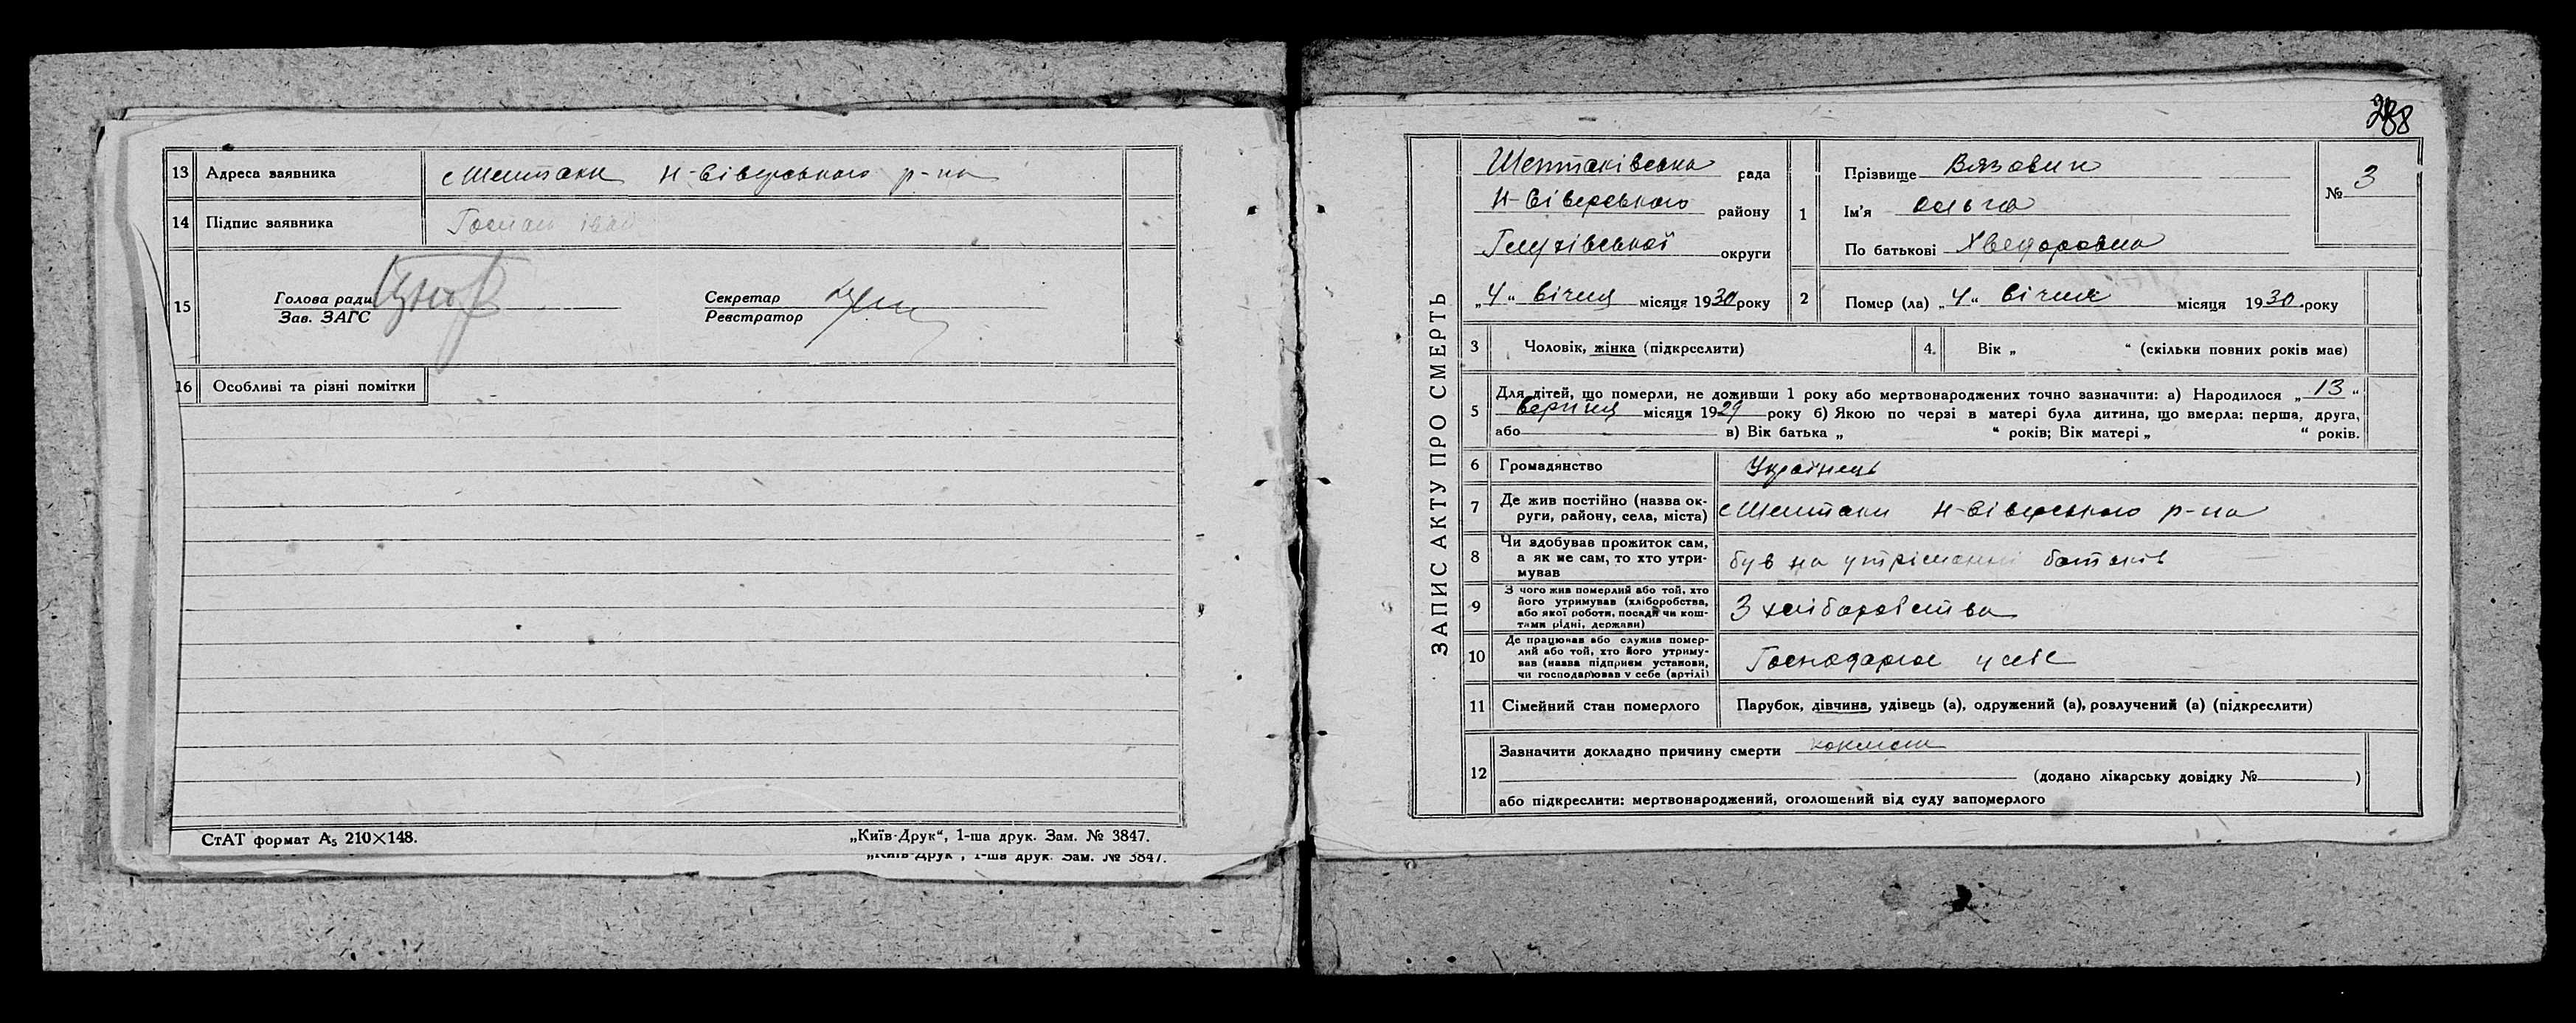 13 Адреса заявника с Шептаки Н-Сіверського р-на
14 Підпис заявника
15 Голова ради
Зав. ЗАГС
Секретар
Реєстратор
16 Особливі та різні помітки
СтАТ формат А₅ 210×148.
„Київ-Друк“, 1-ша друк. Зам. № 3847.
„Київ-Друк“, 1-ша друк. Зам. № 3847.
288
ЗАПИС АКТУ ПРО СМЕРТЬ
Шептаківська рада
Н-Сіверського району
Глухівської округи
„4“ Січня місяця 1930 року
1 Прізвище Вязович
Ім'я Ольга
По батькові Хведоровна
№ 3
2 Помер (ла) „4“ Січня місяця 1930 року
3 Чоловік, жінка (підкреслити)
4. Вік „ “ (скільки повних років має)
5 Для дітей, що померли, не доживши 1 року або мертвонароджених точно зазначити: а) Народилося „13“
Серпня місяця 1929 року б) Якою по черзі в матері була дитина, що вмерла: перша, друга,
або в) Вік батька „ “ років; Вік матері „ “ років.
6 Громадянство Українець
7 Де жив постійно (назва ок-
руги, району, села, міста) с Шептаки Н-Сіверського р-на
8 Чи здобував прожиток сам,
а як не сам, то хто утри-
мував був на утріманні батьків
9 З чого жив померлий або той, хто
його утримував (хліборобства,
або якої роботи, посади чи кош-
тами рідні, держави) З хліборобства
10 Де працював або служив помер-
лий або той, хто його утриму-
вав (назва підприєм установи,
чи господарював у себе (артілі) Господарює у себе
11 Сімейний стан померлого Парубок, дівчина, удівець (а), одружений (а), розлучений (а) (підкреслити)
12 Зазначити докладно причину смерти коклюш
(додано лікарську довідку № )
або підкреслити: мертвонароджений, оголошений від суду запомерлого